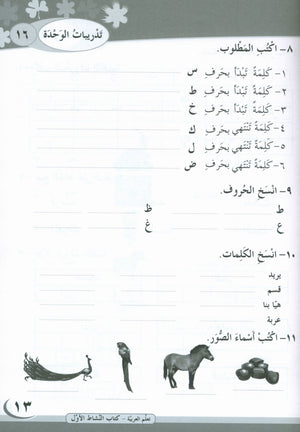 تَدْريباتُ الوَحْدَة ١٦
٨- اكْتُبِ المَطْلوب.
١- كَلِمَةٌ تَبْدَأُ بِحَرفِ س
٢- كَلِمَةٌ تَبْدَأُ بِحَرفِ ط
٣- كَلِمَةٌ تَبْدَأُ بِحَرفِ خ
٤- كَلِمَةٌ تَنْتَهي بِحَرفِ ك
٥- كَلِمَةٌ تَنْتَهي بِحَرفِ ل
٦- كَلِمَةٌ تَنْتَهي بِحَرفِ ض
٩- انْسَخِ الحُروف.
ط ظ
ع غ
١٠- انْسَخِ الكَلِمات.
يريد
قسم
هيّا بنا
عربة
١١- اكْتُبْ أَسْماءَ الصُّوَر.
تعلّم العربيّة - كتاب النّشاط الأوّل
١٣